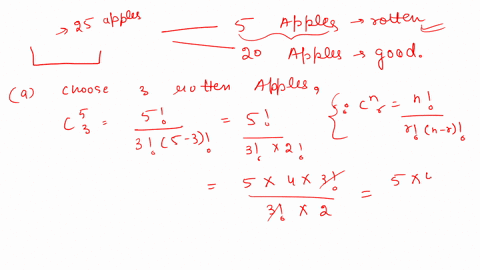 → 25 apples
5 Apples → rotten
20 Apples → good.
(a) choose 3 rotten Apples,
C^5_3 = 5!/(3!(5-3)!) = 5!/(3! × 2!) {∵ C^n_r = n!/(r!(n-r)!)
= (5 × 4 × 3!)/(3! × 2) = 5 ×